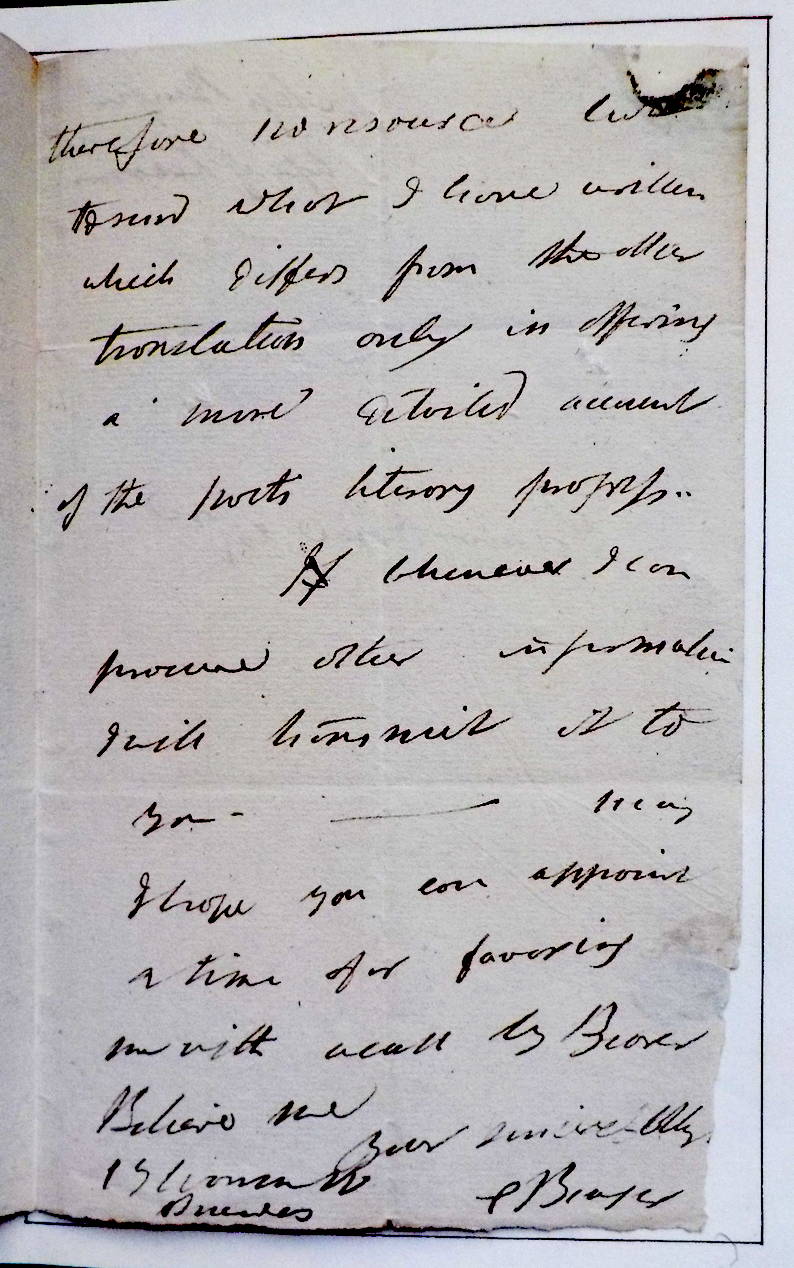 therefore no resource but
to send what I have written
which differs from the other
translation only in offering
a more detailed account
of the poets literary progress..
If whenever I can
procure other information
I will transmit it to
you -
I hope you can appoint
a time for favoring
me with a call by Bearer
Believe me
Your sincerely